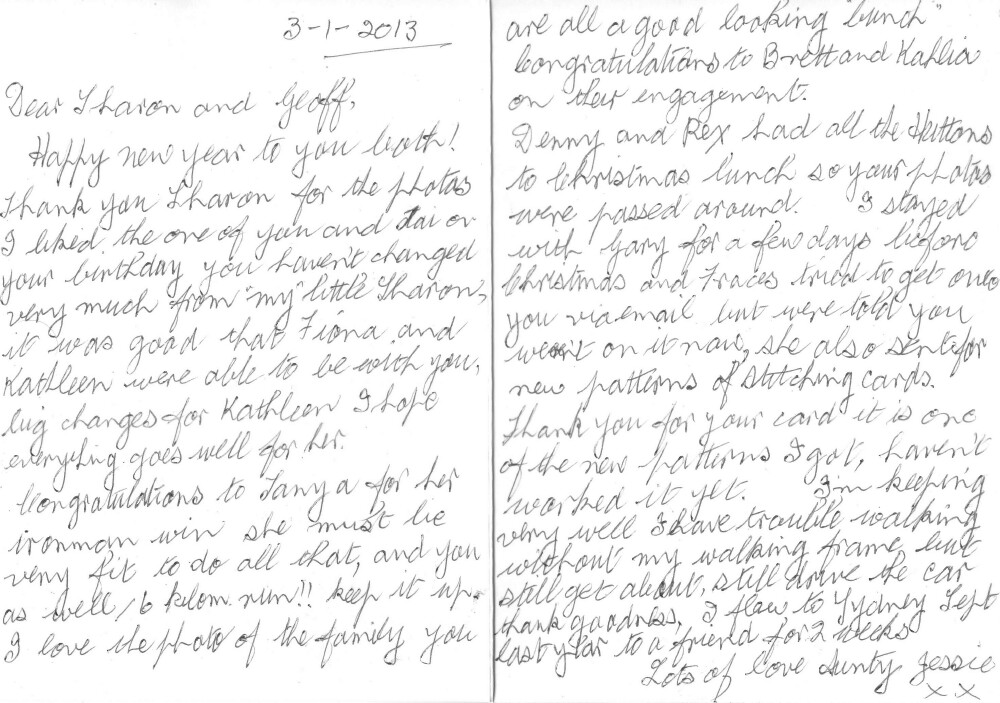 3-1-2013
Dear Sharon and Geoff,
Happy new year to you both!
Thank you Sharon for the photos
I liked the one of you and Jai on
your birthday you haven't changed
very much from "my" little Sharon,
it was good that Fiona and
Kathleen were able to be with you,
big changes for Kathleen I hope
everything goes well for her.
Congratulations to Tanya for her
ironman win she must be
very fit to do all that, and you
as well, 6 kilom. run!! keep it up.
I love the photo of the family you
are all a good looking "bunch"
Congratulations to Brett and Kahlia
on their engagement.
Denny and Rex had all the Huttons
to Christmas lunch so your photos
were passed around. I stayed
with Gary for a few days before
Christmas and Traces tried to get onto
you via email but were told you
weren't on it now, she also sent for
new patterns of stitching cards.
Thank you for your card it is one
of the new patterns I got, haven't
worked it yet. I'm keeping
very well I have trouble walking
without my walking frame, but
still get about, still drive the car
thank goodness, I flew to Sydney Sept
last year to a friend for 2 weeks
Lots of love Aunty Jessie
x x